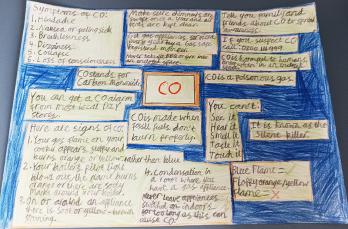 Symptoms of CO:
1. Headache
2. Nausea or feeling sick
3. Breathlessness
4. Dizziness
5. Collapse
6. Loss of consciousness
Make sure chimneys are
swept once a year and all
Tell you family and
friends about CO to spread
awareness.
If you suspect CO
call:
CO stands for
Carbon Monoxide
CO
CO is a poisonous gas
You can get a CO alarm
from most local DIY
stores.
CO is made when
fossil fuels don't
burn properly.
You can't:
See it
Hear it
Smell it
Taste it
Touch it
It is known as the
Silent killer
Here are signs of CO:
1. Your gas flame on your
cooker appears floppy and
burns orange or yellow rather than blue
2. Your boiler's pilot light
blows out, the flame burns
orange or there are sooty
marks around your boiler.
3. On or around an appliance
there is soot or yellow-brown
staining.
4. Condensation in
a room where you
have a gas appliance
Never leave appliances
indoors
for too long as this can
cause CO.
Blue Flame = ✓
Floppy orange/yellow
flame = X